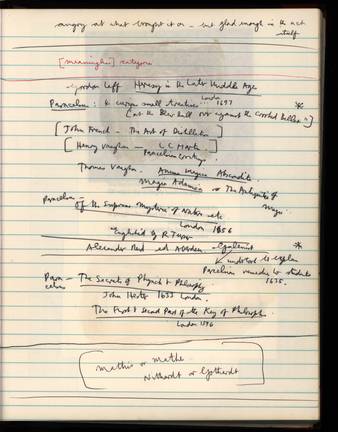 angry at what brought it on - but glad enough in the act
itself
[meaningless] category
Gordon Leff Heresy in the Later Middle Ages
Paracelsus: of certain small treatises London 1657 *
[at the Blue ball over against the Crooked Billet"]
[John French - The Art of Distillation ]
[Henry Vaughan -
Thomas Vaughan. Anima Magica Abscondita
Magia Adamica or The Antiquity of
Magic.
Paracelsus -
Of the Supreme Mysteries of Nature etc
London 1656
Englished by R. Turner
Alexander Read ed *
undertook to explain
Paracelsian remedies to students
1635.
Para - The Secrets of Physick & Philosophy
celsus
John Hester 1633 London.
The First & Second Part of the Key of Philosophie
London 1596
Mathis or Mathe
Nithardt or Gothardt